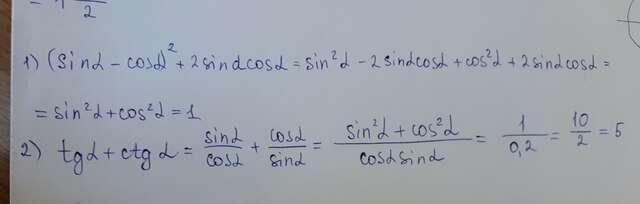 2
1) (sinα - cosα)² + 2sinαcosα = sin²α - 2sinαcosα + cos²α + 2sinαcosα =
= sin²α + cos²α = 1
2) tgα + ctgα = sinα/cosα + cosα/sinα = (sin²α + cos²α)/(cosαsinα) = 1/0,2 = 10/2 = 5